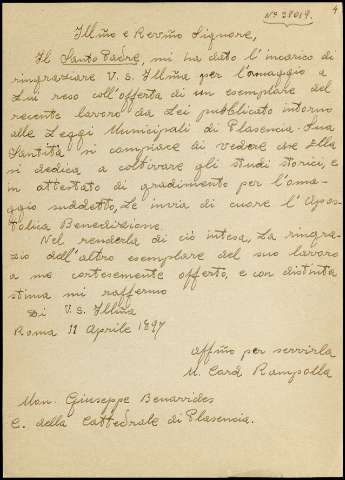 Nº 38019.
4
Illño e Revño Signore,
Il Santo Padre, mi ha dato l'incarico di
ringraziare V. S. Illña per l'omaggio a
Lui reso coll'offerta di un esemplare del
recente lavoro da Lei pubblicato intorno
alle Leggi Municipali di Plasencia. Sua
Santità si compiace di vedere che Ella
si dedica, a coltivare gli studi storici, e
in attestato di gradimento per l'oma-
ggio suddetto, Le invia di cuore l'Apos-
tolica Benedizione.
Nel renderla di ciò intesa, La ringra-
zio dell'altro esemplare del suo lavoro
a me cortesemente offerto, e con distinta
stima mi raffermo
Di V. S. Illña
Roma 11 Aprile 1897
Affño per servirla
M. Card Rampolla
Mon. Giuseppe Benavides
C. della Cattedrale di Plasencia.